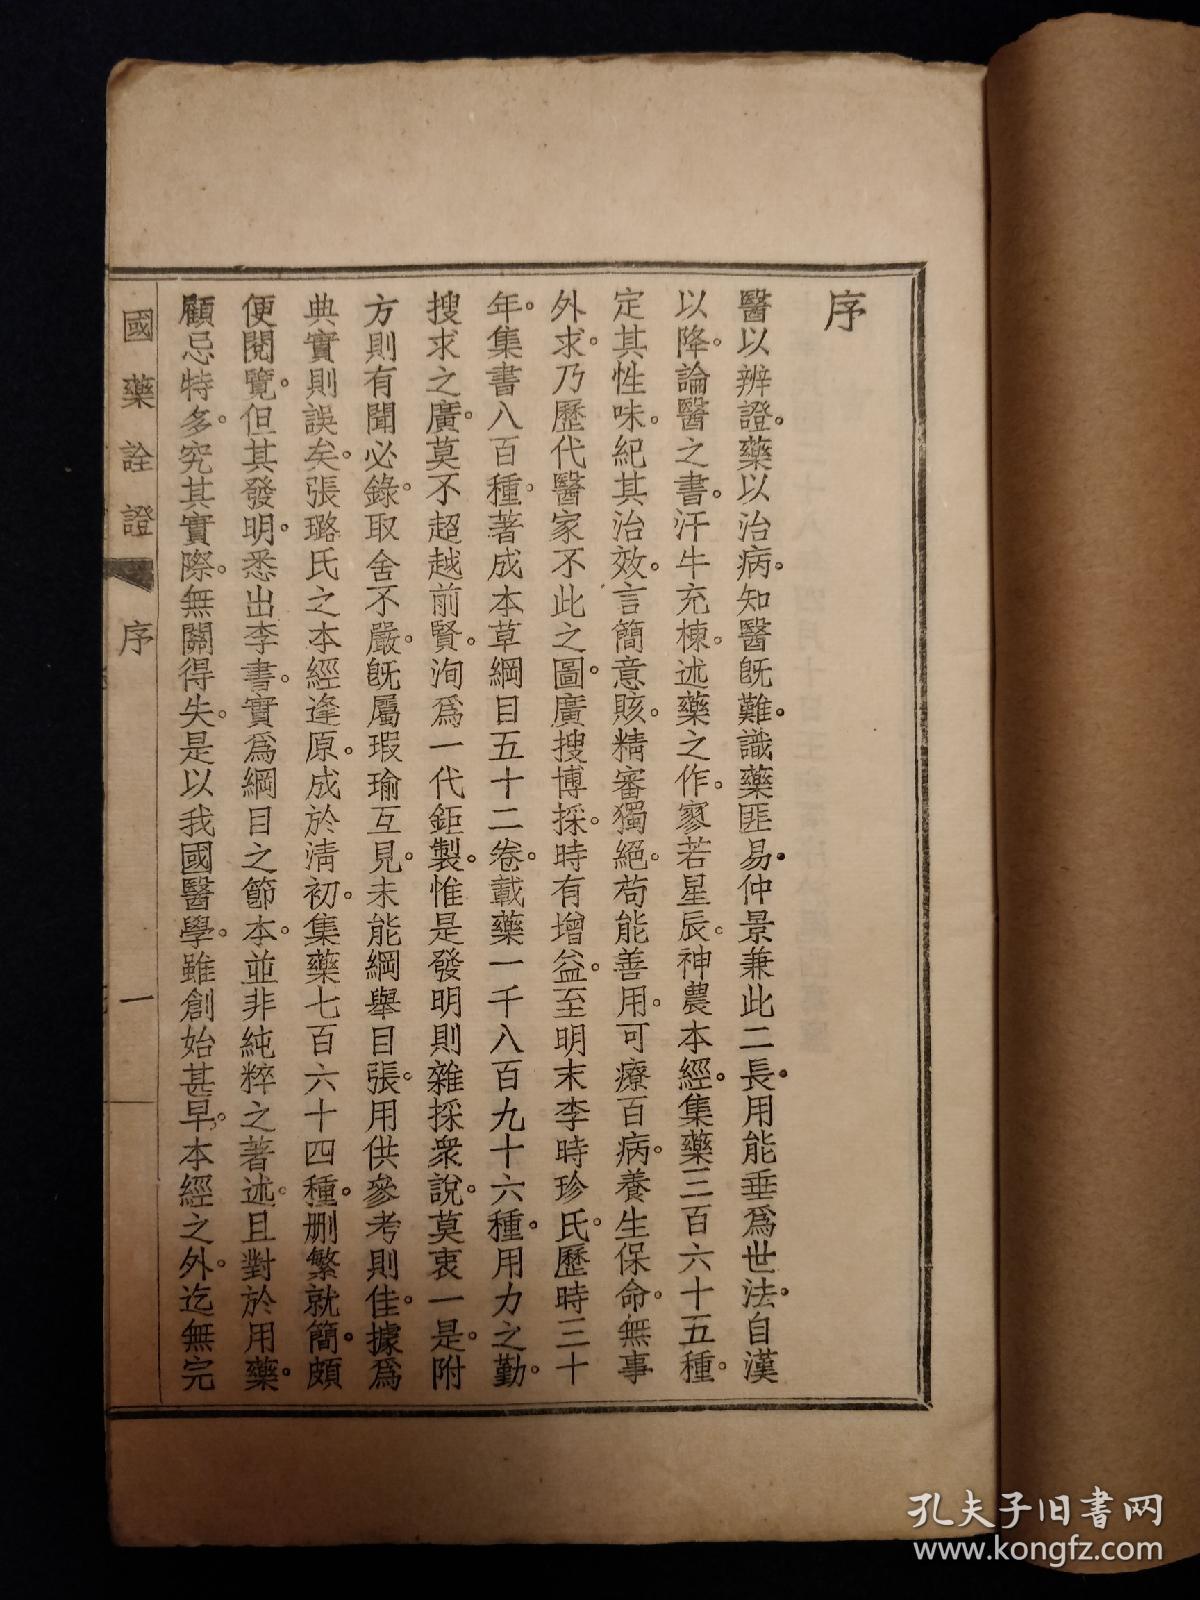 序
醫以辨證。藥以治病。知醫旣難。識藥匪易。仲景兼此二長。用能垂爲世法。自漢
以降。論醫之書。汗牛充棟。述藥之作。寥若星辰。神農本經。集藥三百六十五種。
定其性味。紀其治效。言簡意賅。精審獨絕。苟能善用。可療百病。養生保命。無事
外求。乃歷代醫家不此之圖。廣搜博採。時有增益。至明末李時珍氏。歷時三十
年。集書八百種。著成本草綱目五十二卷。載藥一千八百九十六種。用力之勤。
搜求之廣。莫不超越前賢。洵爲一代鉅製。惟是發明則雜採衆說。莫衷一是。附
方則有聞必錄。取舍不嚴。旣屬瑕瑜互見。未能綱舉目張。用供參考則佳。據爲
典實則誤矣。張璐氏之本經逢原。成於淸初。集藥七百六十四種。刪繁就簡。頗
便閱覽。但其發明。悉出李書。實爲綱目之節本。並非純粹之著述。且對於用藥。
顧忌特多。究其實際。無關得失。是以我國醫學。雖創始甚早。本經之外。迄無完
國藥詮證 序 一
孔夫子旧書网
www.kongfz.com